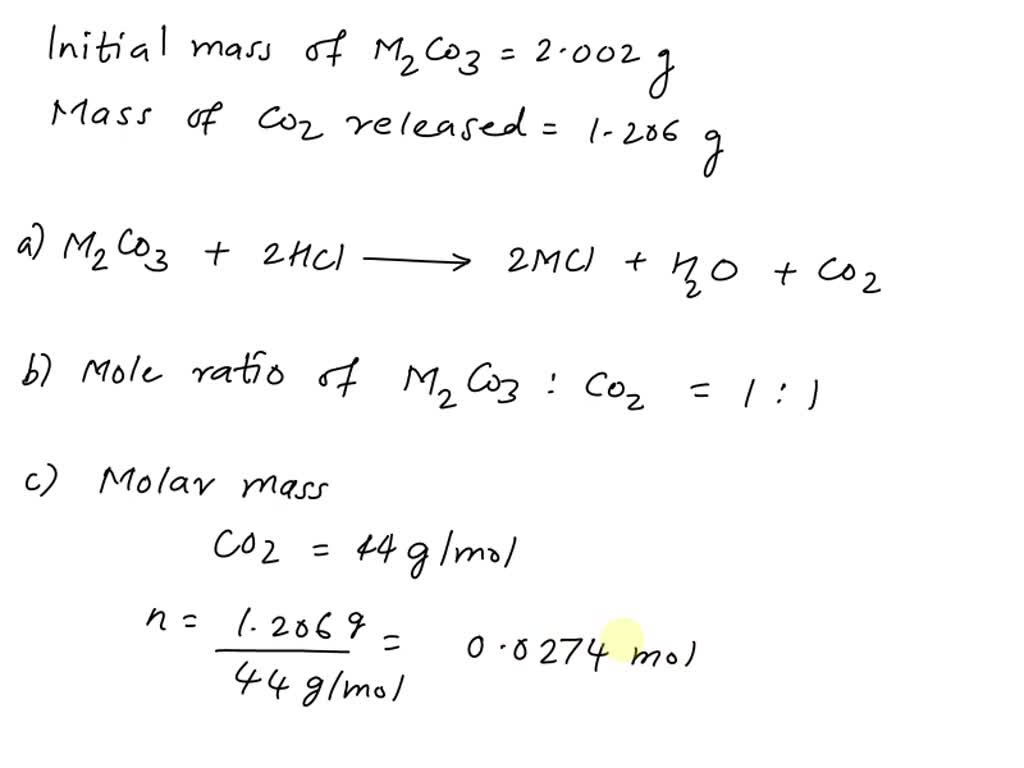 Initial mass of M₂CO₃ = 2.002 g
Mass of CO₂ released = 1.206 g
a) M₂CO₃ + 2HCl ⟶ 2MCl + H₂O + CO₂
b) Mole ratio of M₂CO₃ : CO₂ = 1 : 1
c) Molar mass
CO₂ = 44 g/mol
n = 1.206 g / 44 g/mol = 0.0274 mol